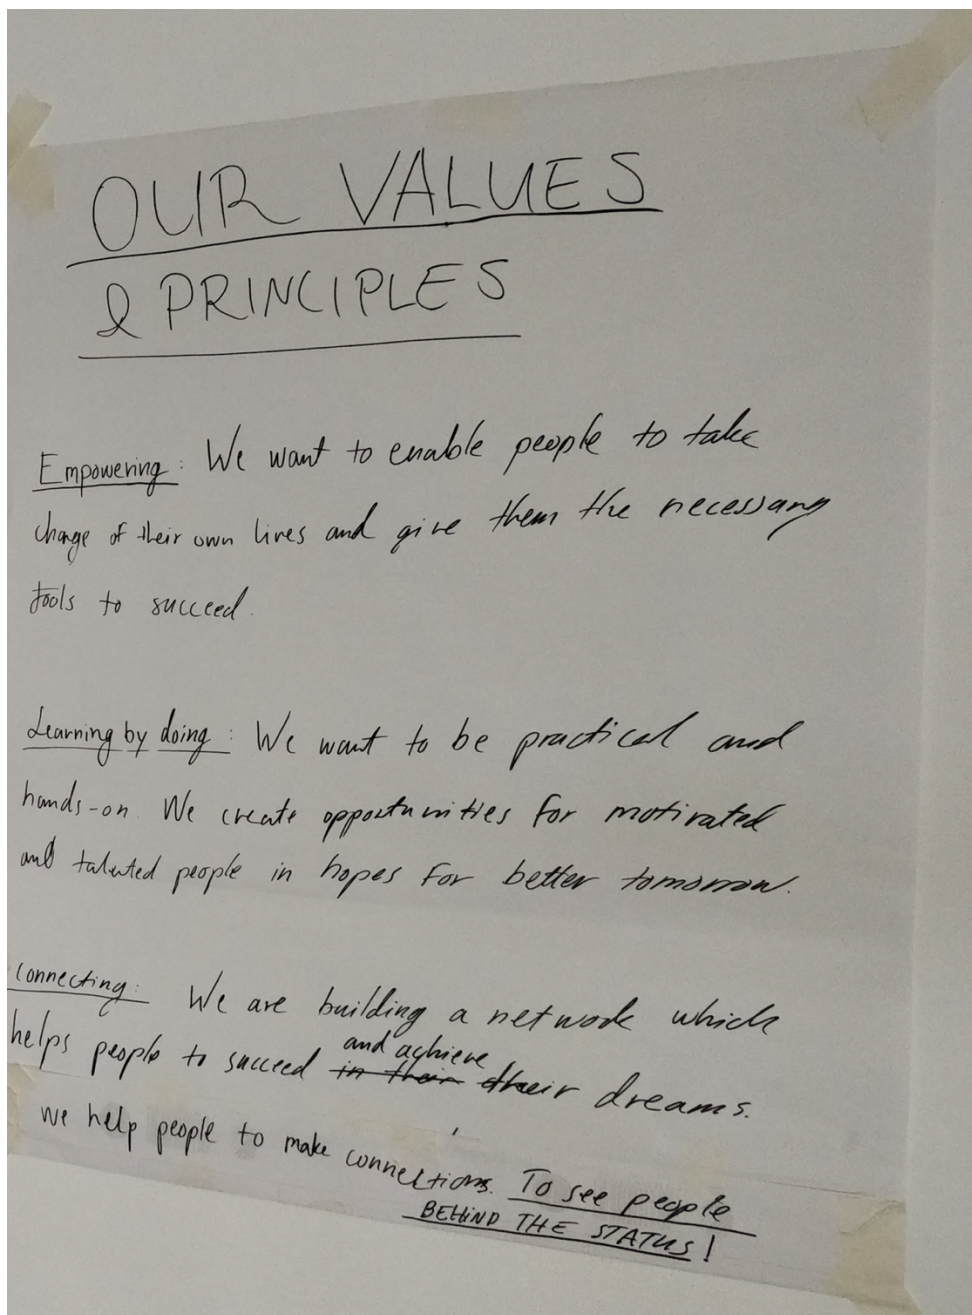 OUR VALUES
& PRINCIPLES
Empowering: We want to enable people to take
charge of their own lives and give them the necessary
tools to succeed.
Learning by doing: We want to be practical and
hands-on. We create opportunities for motivated
and talented people in hopes for better tomorrow.
Connecting: We are building a network which
and achieve
helps people to succeed in their their dreams.
We help people to make connections. To see people
BEHIND THE STATUS!